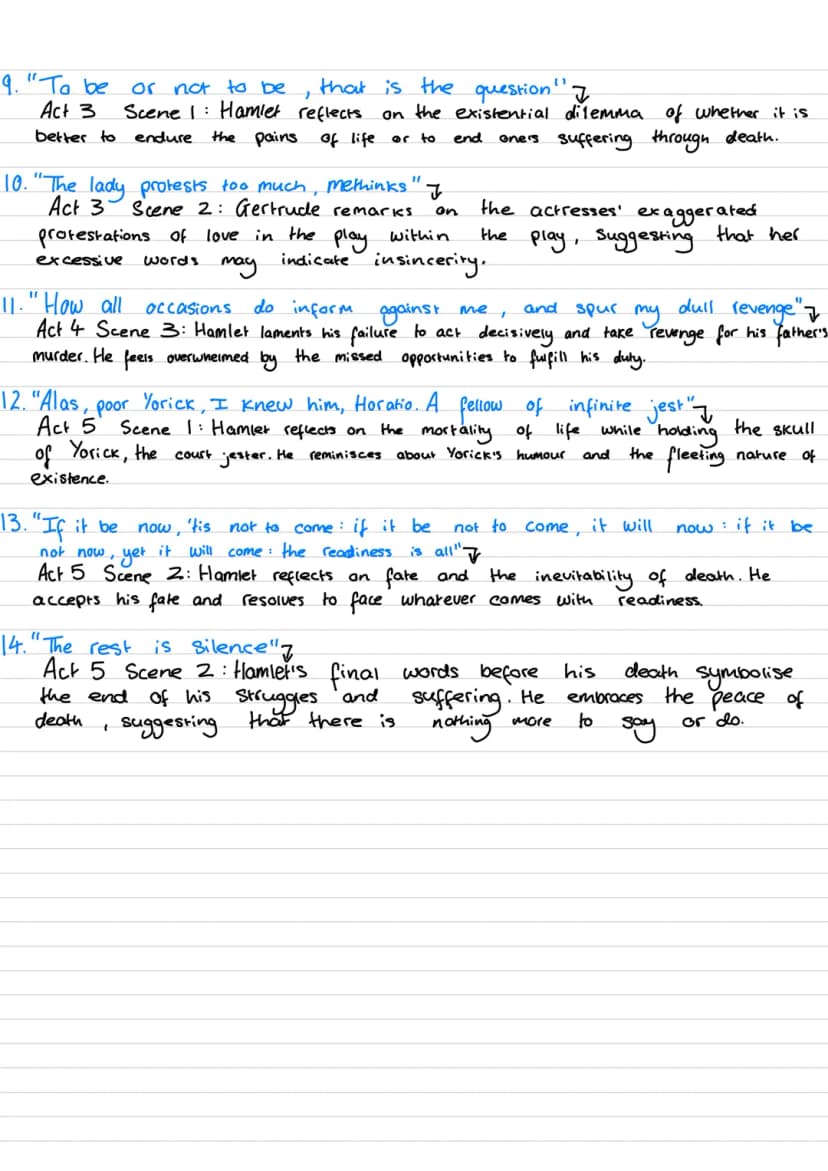 9. "To be or not to be, that is the question"↴
Act 3 Scene 1: Hamlet reflects on the existential dilemma of whether it is
better to endure the pains of life or to end one's suffering through death.
10. "The lady protests too much, methinks"↴
Act 3 Scene 2: Gertrude remarks on the actresses' exaggerated
protestations of love in the play within the play, suggesting that her
excessive words may indicate insincerity.
11. "How all occasions do inform against me, and spur my dull revenge"↴
Act 4 Scene 3: Hamlet laments his failure to act decisively and take revenge for his father's
murder. He feels overwhelmed by the missed opportunities to fulfill his duty.
12. "Alas, poor Yorick, I knew him, Horatio. A fellow of infinite jest"↴
Act 5 Scene 1: Hamlet reflects on the mortality of life while holding the skull
of Yorick, the court jester. He reminisces about Yorick's humour and the fleeting nature of
existence.
13. "If it be now, 'tis not to come: if it be not to come, it will now: if it be
not now, yet it will come: the readiness is all"↴
Act 5 Scene 2: Hamlet reflects on fate and the inevitability of death. He
accepts his fate and resolves to face whatever comes with readiness.
14. "The rest is silence"↴
Act 5 Scene 2: Hamlet's final words before his death symbolise
the end of his struggles and suffering. He embraces the peace of
death, suggesting that there is nothing more to say or do.